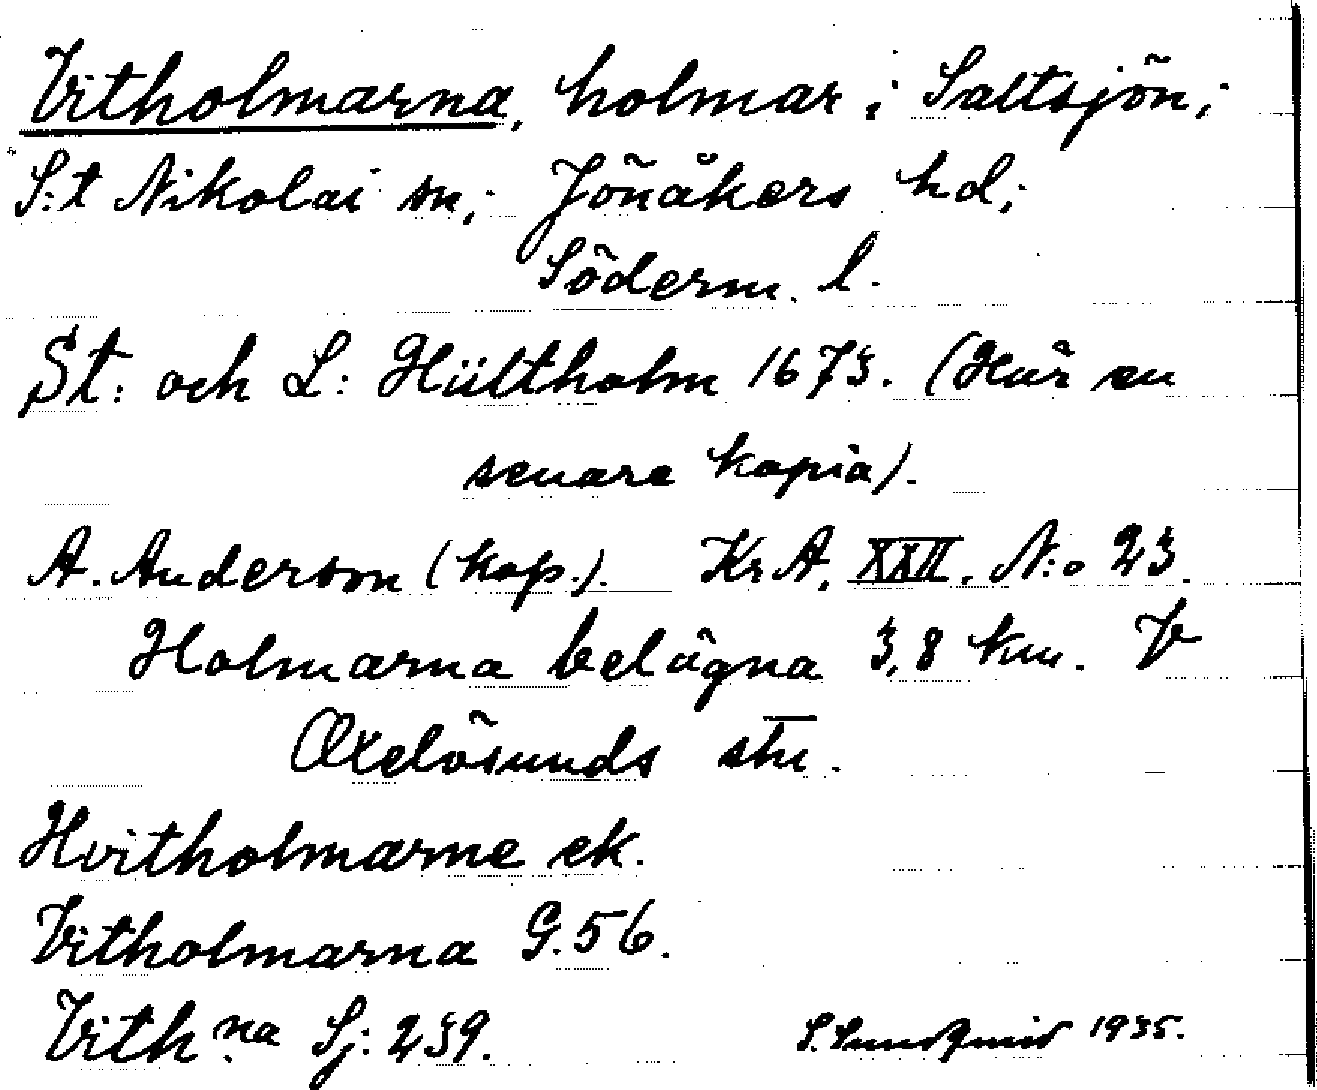 Vitholmarna, holmar i Saltsjön;
S:t Nikolai sn; Jönåkers hd;
Söderm. l.
St: och L: Hültholm 1673. (Här en
senare kopia).
A. Anderson (kop.). Kr A. XXII. N:o 23.
Holmarna belägna 3,8 km.
Oxelösunds stn.
Hvitholmarne ek.
Vitholmarna G. 56.
Vith:na Sj: 239.
S. Sundquist 1935.